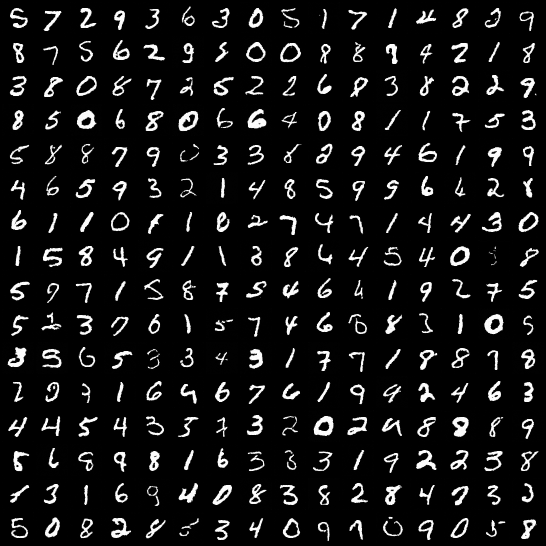 5 7 2 9 3 6 3 0 5 1 7 1 4 8 2 9
8 7 5 6 2 9 5 0 0 8 8 9 4 2 1 8
3 8 0 8 7 2 5 2 2 6 8 3 8 2 2 9
8 5 0 6 8 0 6 6 4 0 8 1 1 7 5 3
5 8 8 7 9 0 3 3 8 2 9 4 6 1 9 9
4 6 5 9 3 2 1 4 8 5 9 9 6 6 2 8
6 1 1 0 1 8 2 7 4 7 1 4 4 3 0
1 5 8 4 9 1 1 8 8 6 4 5 4 0 8
5 9 7 1 5 8 7 5 4 6 6 1 9 2 7 5
5 2 3 7 6 1 5 7 4 6 8 8 3 1 0 5
3 5 6 5 3 3 4 3 1 7 7 1 8 8 9 8
2 9 7 1 6 4 6 7 6 1 9 9 2 4 6 3
4 4 5 4 3 5 7 3 2 0 2 4 8 8 8 9
8 6 9 9 8 1 6 3 3 3 1 9 2 2 3 8
1 3 1 6 9 4 0 8 3 8 2 8 4 7 3 2
5 0 8 2 8 5 3 4 0 9 7 0 9 0 5 8